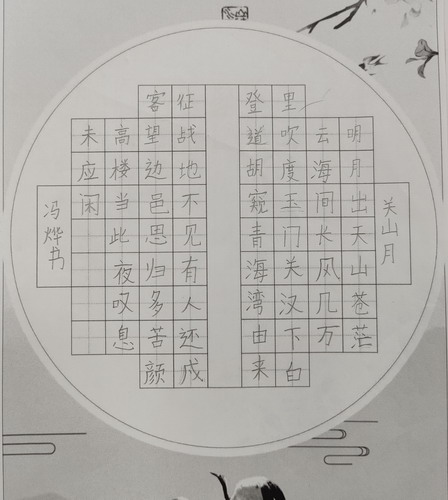 关山月
明月出天山苍茫
云海间长风几万
里吹度玉门关汉下白
登道胡窥青海湾由来
征战地不见有人还戍
客望边邑思归多苦颜
高楼当此夜叹息
未应闲
冯烨书